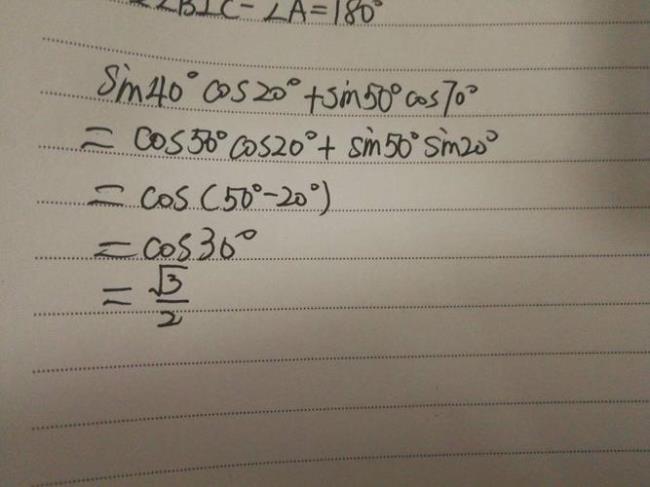 ∠BIC-∠A=180°
Sin40°cos20°+sin50°cos70°
=cos50°cos20°+sin50°sin20°
=cos(50°-20°)
=cos30°
=√3/2